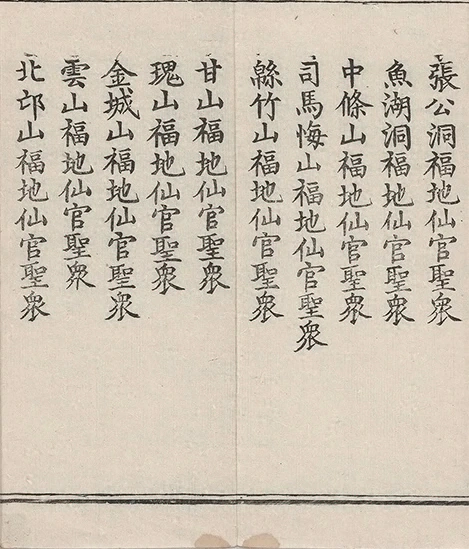 張公洞福地仙官聖衆
魚湖洞福地仙官聖衆
中條山福地仙官聖衆
司馬悔山福地仙官聖衆
緜竹山福地仙官聖衆
甘山福地仙官聖衆
瑰山福地仙官聖衆
金城山福地仙官聖衆
雲山福地仙官聖衆
北邙山福地仙官聖衆